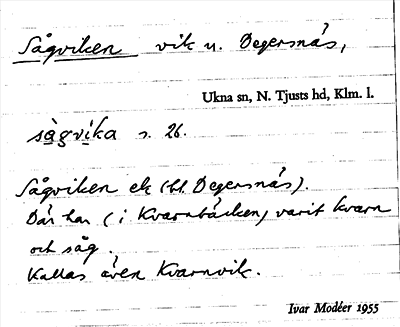 Sågviken vik u. Degersnäs,
Ukna sn, N. Tjusts hd, Klm. l.
sågvika s. 26.
Sågviken ek (bl. Degersnäs).
Där har (i Kvarnbäcken) varit kvarn
och såg.
Kallas även Kvarnvik.
Ivar Modéer 1955